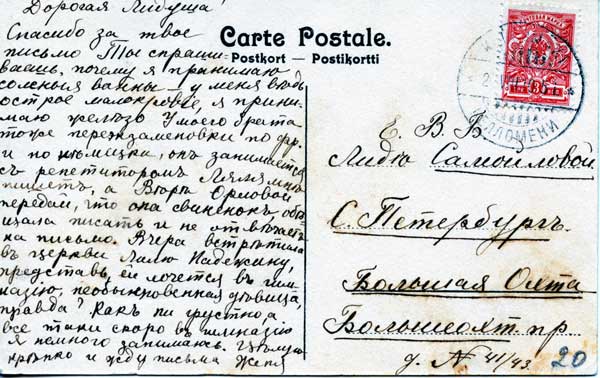 Дорогая Лидуша!
Спасибо за твое
письмо Ты спраши-
ваешь, почему я принимаю
соленыя ванны – у меня вѣдь
острое малокровіе, я прини-
маю желѣзо У моего брата
тоже переэкзаменовки по фр.
и по нѣмецки, онъ занимается
съ репетиторомъ Ляля мнѣ
пишетъ, а Вѣрѣ Орловой
передай, что она свиненокъ, обѣ-
щала писать и не отвѣчаетъ
на письмо. Вчера встрѣтила
въ церкви Лилю Надежину,
представь, ей хочется въ гим-
назію, необыкновенная дѣвица,
правда? Какъ ни грустно, а
все таки скоро въ гимназію
Я немного занимаюсь. Цѣлую
крѣпко и жду письма Женя
Carte Postale.
Postkort — Postikortti
ПОЧТОВАЯ МАРКА
КЕЛЛОМЯКИ
Е. В. Б.
Лидію Самоиловой
С. Петербургъ.
Большая Охта
Большеохт. пр.
д. № 41/43.
20